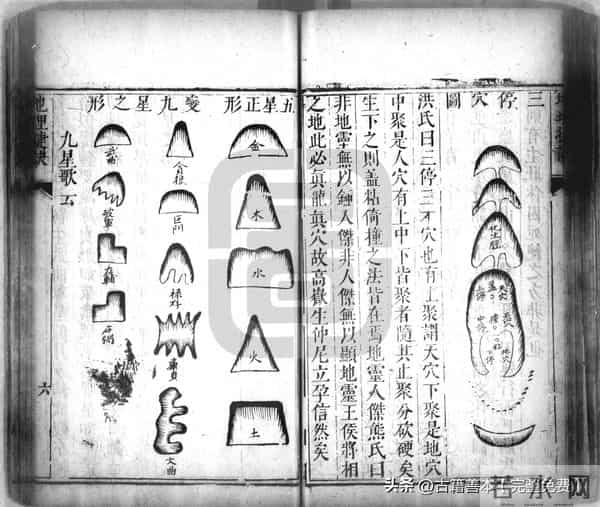 三停穴圖
化生腦
天穴
上停
中停
洪氏曰三停三才穴也有上聚謂天穴下聚是地穴
中聚是人穴有上中下皆聚者隨其止聚分砍硬矣
生下之則蓋粘倚撞之法皆在焉地靈人傑熊氏曰
非地靈無以鍾人傑非人傑無以顯地靈王侯將相
之地此必眞龍眞穴故高嶽生仲尼立孕信然矣
五星正形
金
木
水
火
土
變九星之形
貪狼
巨門
祿存
廉貞
文曲
武曲
破軍
左輔
右弼
九星歌云
六
头条 @古籍善本